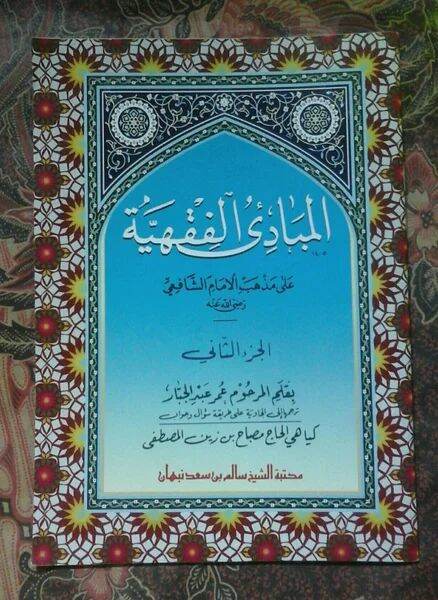 المبادئ الفقهية
١٤٠٥
على مذهب الإمام الشافعي
رضي الله عنه
الجزء الثاني
بقلم المرحوم عمر عبد الجبار
ترجم إلى الجاوية على طريقة سؤال وجواب
كياهي الحاج مصباح بن زين المصطفى
مكتبة الشيخ سالم بن سعد نبهان